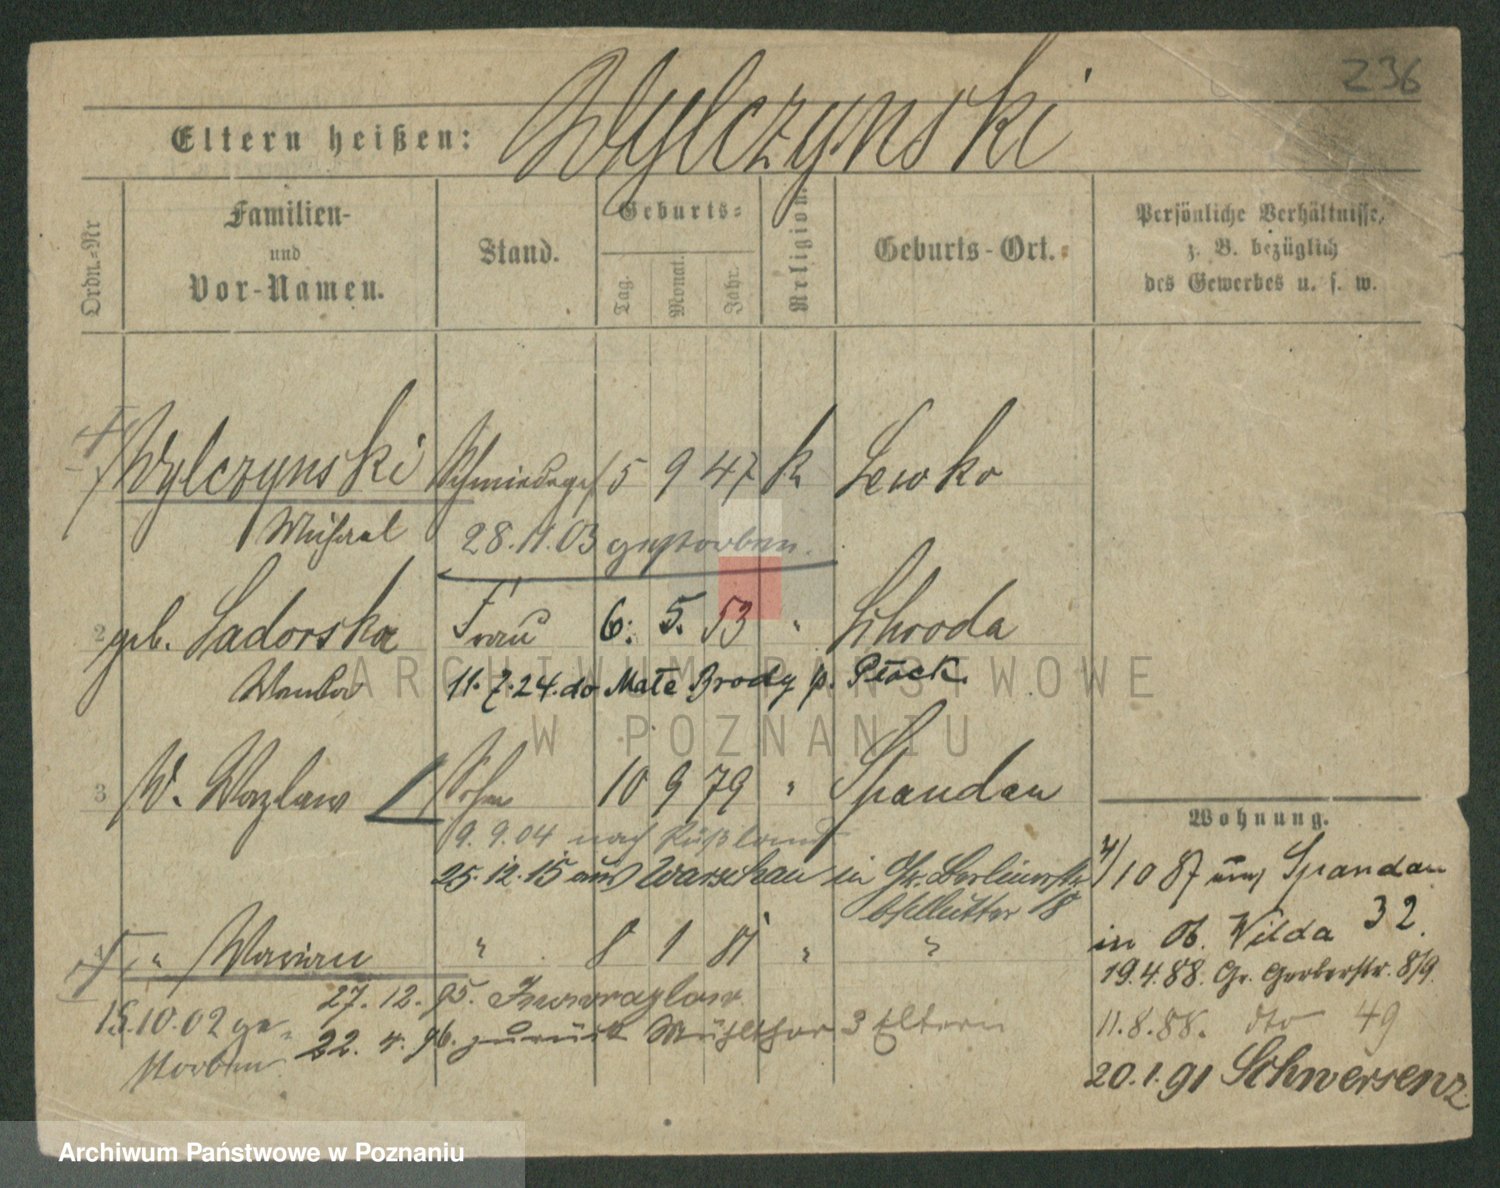 236
Eltern heißen: Wylczynski
Ordn.-Nr
Familien-
und
Vor-Namen.
Stand.
Geburts-
Tag. Monat. Jahr.
Religion.
Geburts-Ort.
Persönliche Verhältnisse,
z. B. bezüglich
des Gewerbes u. s. w.
Wylczynski Schmiedeges 15 9 47 k Lewko
Michael 28.11.03 gestorben.
2 geb. Sadorska Frau 6. 5. 53 " Schroda
Wanda 11.7.24. do Małe Brody p. Płock.
3 W. Wazlaw Sohn 10 9 79 " Spandau
9.9.04 nach Rußland
25.12.15 aus Warschau in Gr. Berlinerstr
18
" Marian " 8 1 81 " "
27.12.95. Inowrazlaw
15.10.02 ge-
storben
22. 4. 96. zurück Mühlthor 3 Eltern
Wohnung.
4/10 87 aus Spandau
in Ob. Wilda 32.
19.4.88. Gr. Gerberstr. 8/9
11.8.88. dto 49
20.1.91 Schwersenz
ARCHIWUM PAŃSTWOWE
W POZNANIU
Archiwum Państwowe w Poznaniu